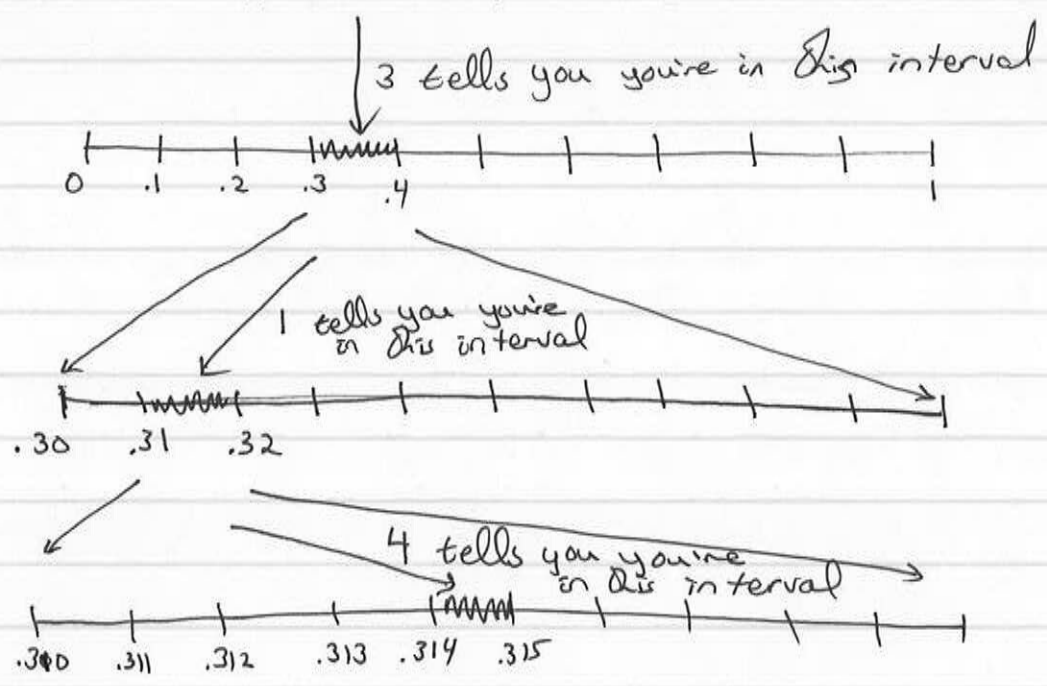 3 tells you you're in this interval
0 .1 .2 .3 .4 1
1 tells you you're
in this interval
.30 .31 .32
4 tells you you're
in this interval
.310 .311 .312 .313 .314 .315